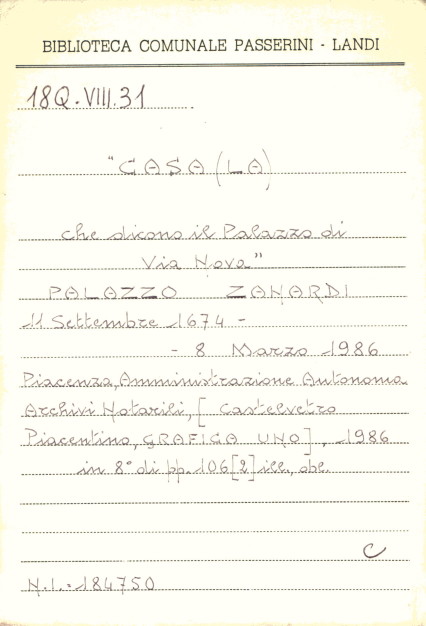 BIBLIOTECA COMUNALE PASSERINI - LANDI
18Q.VIII.31
"CASA (LA)
che dicono il Palazzo di
Via Nova"
PALAZZO ZANARDI
11 Settembre 1674 -
- 8 Marzo 1986
Piacenza, Amministrazione Autonoma
Archivi Notarili, [Castelvetro
Piacentino, GRAFICA UNO], 1986
in 8° di pp. 106[2] ill.,
C
N.I.: 184750